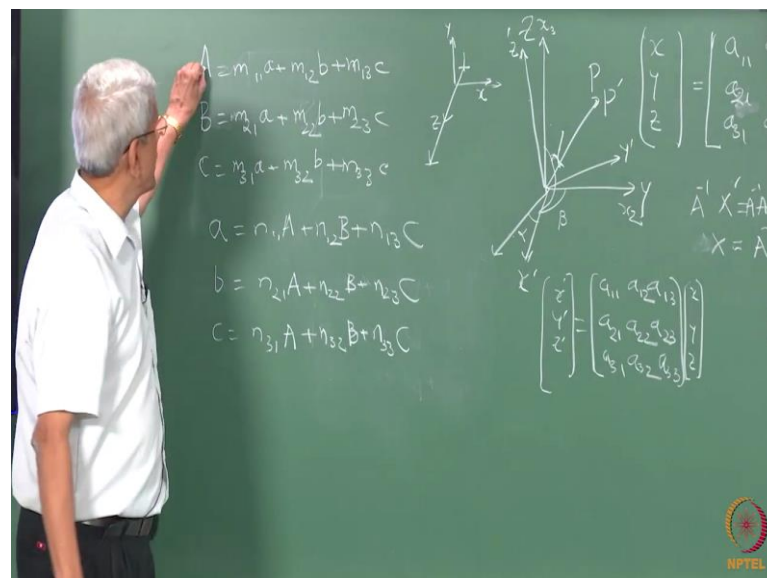 A = m₁₁a + m₁₂b + m₁₃c
B = m₂₁a + m₂₂b + m₂₃c
C = m₃₁a + m₃₂b + m₃₃c
a = n₁₁A + n₁₂B + n₁₃C
b = n₂₁A + n₂₂B + n₂₃C
c = n₃₁A + n₃₂B + n₃₃C
Y
x
Z
z' Z x₃
P
P'
Y'
Y
x₂
β
γ
X'
x a₁₁
y = a₂₁
z a₃₁ a
A⁻¹ X' = A⁻¹A
X = A⁻¹
x' a₁₁ a₁₂ a₁₃ x
y' = a₂₁ a₂₂ a₂₃ y
z' a₃₁ a₃₂ a₃₃ z
NPTEL